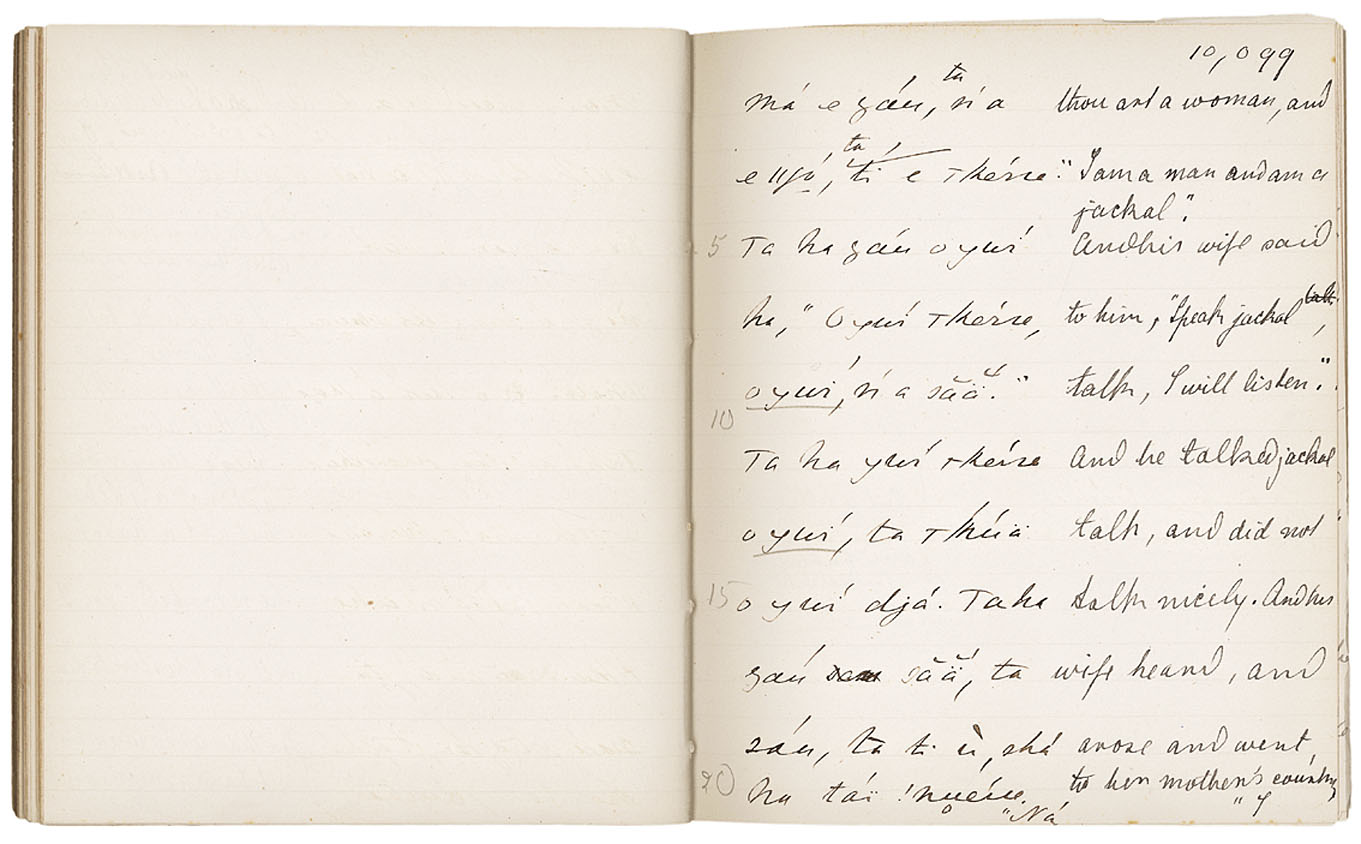 10,099
má e záu, ta ń a thou art a woman, and
e ‖gó, ta tí e Tkéise." I am a man and am a
jackal".
5 Ta ha záu o ywí And his wife said
ha, " O ywí Tkéise, to him, "Speak jackal talk,
o ywí, ń a sãä." talk, I will listen."
10
Ta ha ywí Tkéise And he talked jackal
o ywí, ta Tkúä talk, and did not
15 o ywí djá. Ta ha talk nicely. And his
záu sãä, ta wife heard, and
záu, ta ti ù, shá arose and went
20 ha táï to her mother's country,
"Ná "I